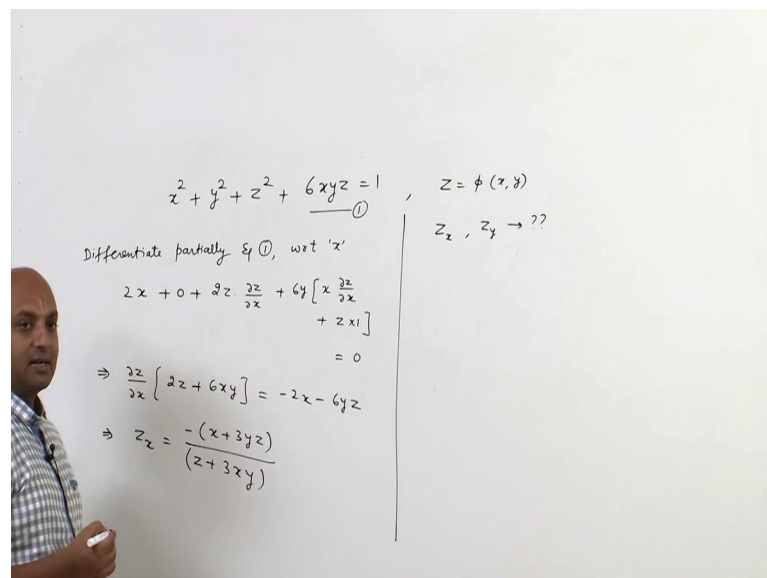 x² + y² + z² + 6xyz = 1 , z = φ (x, y)
①
z_x , z_y → ??
Differentiate partially Eq ①, wrt 'x'
2x + 0 + 2z · ∂z/∂x + 6y [ x ∂z/∂x
+ z×1 ]
= 0
⇒ ∂z/∂x [ 2z + 6xy ] = -2x - 6yz
⇒ z_x = -(x+3yz) / (z+3xy)